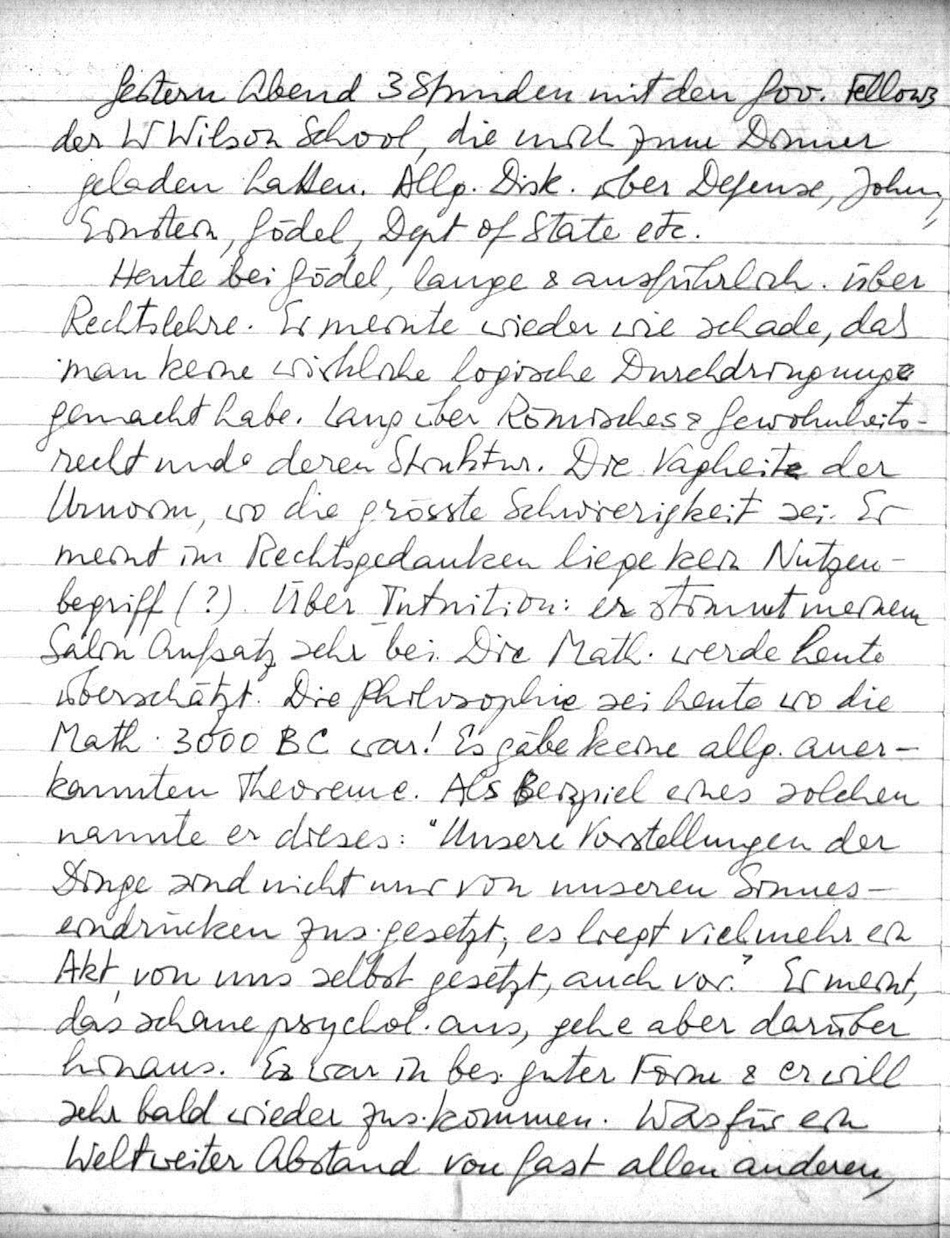 Gestern Abend 3 Stunden mit den Gov. Fellows
der W Wilson School, die mich zum Dinner
geladen hatten. Allg. Disk. über Defense, Johnny,
Einstein, Gödel, Dept of State etc.
Heute bei Gödel, lange & ausführlich. über
Rechtslehre. Er meinte wieder wie schade, das
man keine wirkliche logische Durchdringung
gemacht habe. Lang über Römisches & Gewohnheits-
recht und deren Struktur. Die Vagheit der
Urnorm, wo die grösste Schwierigkeit sei. Er
meint im Rechtsgedanken liege kein Nutzen-
begriff (?). Über Intuition: er stimmt meinem
Salin Aufsatz sehr bei. Die Math. werde heute
überschätzt. Die Philosophie sei heute wo die
Math. 3000 BC war! Es gäbe keine allg. aner-
kannten Theoreme. Als Beispiel eines solchen
nannte er dieses: "Unsere Vorstellungen der
Dinge sind nicht nur von unseren Sinnes-
eindrücken zus.gesetzt, es liegt vielmehr ein
Akt, von uns selbst gesetzt, auch vor." Er meint,
das schaue psychol. aus, gehe aber darüber
hinaus. Er war in bes. guter Form & er will
sehr bald wieder zus.kommen. Was für ein
Weltweiter Abstand von fast allen anderen,